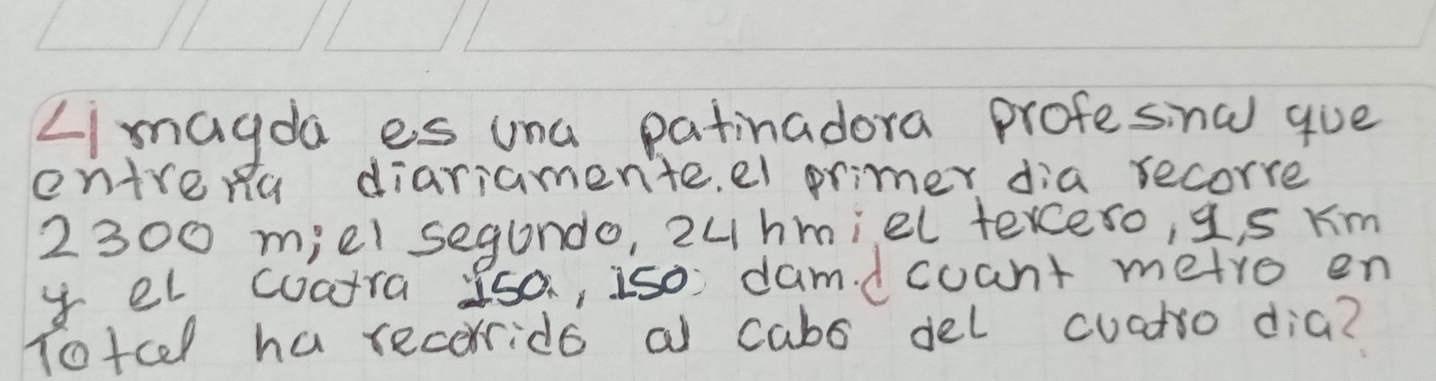 4) magda es una patinadora profesinal que
entrena diariamente. el primer dia recorre
2300 m; el segundo, 24 hm; el tercero, 1,5 Km
y el cuatra 150, 150 dam. ¿ cuant metro en
Total ha recorrido al cabo del cuatro dia?